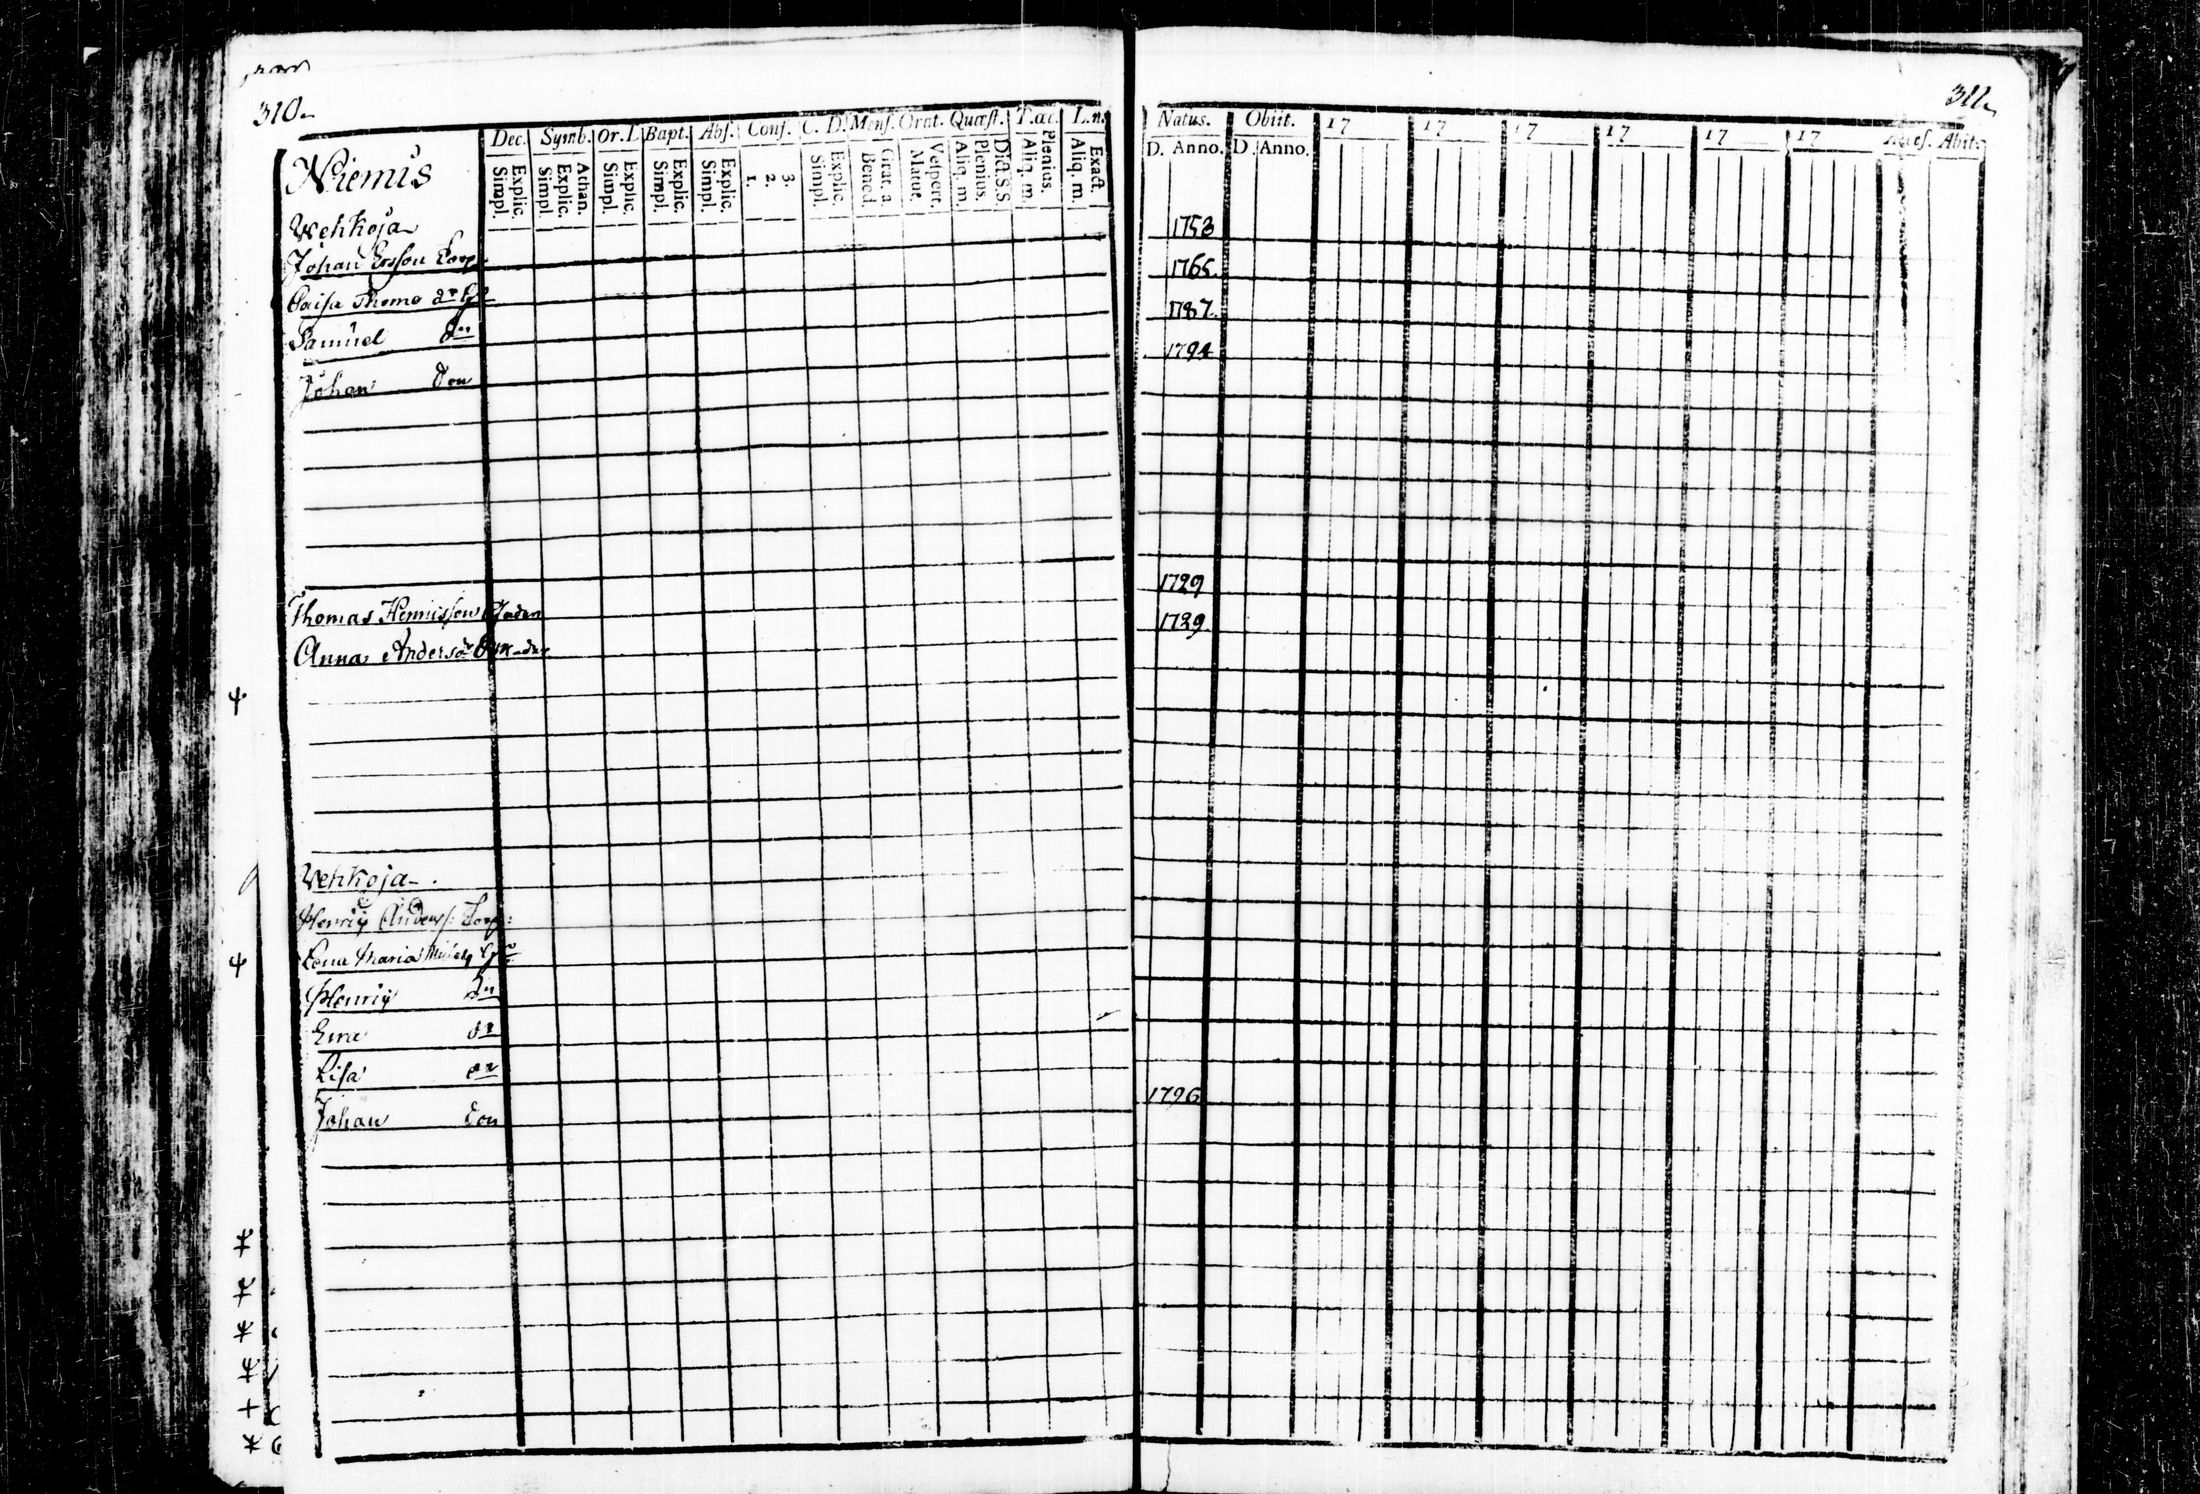 310.
311.
Dec. Symb. Or. D. Bapt. Abs. Conf. C. D. Mens. Orat. Quæst. T. œc. L. n.
Explic. Simpl. Athan. Explic. Simpl. Explic. Simpl. Explic. Simpl. Explic. Simpl. 3. 2. 1. Explic. Simpl. Grat. a. Bened. Vespert. Matut. Dict. S. S. Plenius. Aliq. m. Plenius. Aliq. m. Exact. Aliq. m.
Natus. Obiit. 17 17 17 17 17 17 Acces. Abit.
D. Anno. D. Anno.
Niemis
Wehkoja
Johan Ersson Torp 1753
Caisa Thoms dr 1765.
Samuel Sn 1787.
Johan Son 1794
Thomas Hennisson 1729
Anna Anders dr 1729
Wehkoja
Henrij Anders: Torp:
Lena Maria
Henrij Sn
Ewa dr
Lisa dr
Johan Son 1796